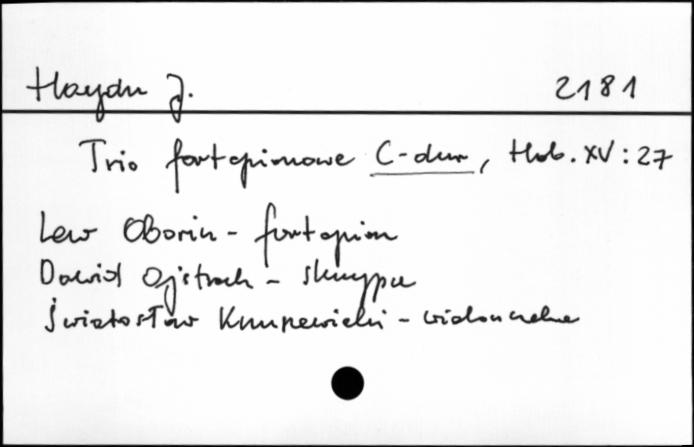 Haydn J. 2181
Trio fortepianowe C-dur, Hob. XV: 27
Lew Oborin - fortepian
Dawid Ojstrach - skrzypce
Światosław Knuszewicki - wiolonczela